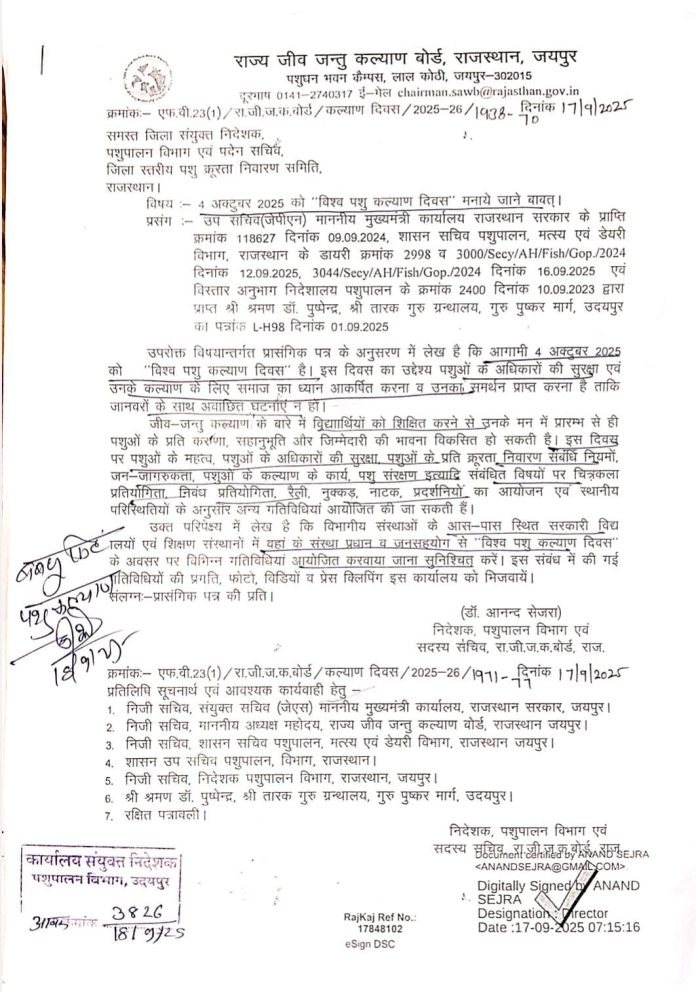 राज्य जीव जन्तु कल्याण बोर्ड, राजस्थान, जयपुर
पशुधन भवन कैम्पस, लाल कोठी, जयपुर–302015
दूरभाष 0141–2740317 ई–मेल chairman.sawb@rajasthan.gov.in
क्रमांकः– एफ.वी.23(1)/रा.जी.ज.क.बोर्ड/कल्याण दिवस/2025–26/1938-70 दिनांक 17/9/2025
समस्त जिला संयुक्त निदेशक,
पशुपालन विभाग एवं पदेन सचिव,
जिला स्तरीय पशु क्रूरता निवारण समिति,
राजस्थान।
विषय :– 4 अक्टुबर 2025 को "विश्व पशु कल्याण दिवस" मनाये जाने बाबत्।
प्रसंग :– उप सचिव(जेपीएन) माननीय मुख्यमंत्री कार्यालय राजस्थान सरकार के प्राप्ति
क्रमांक 118627 दिनांक 09.09.2024, शासन सचिव पशुपालन, मत्स्य एवं डेयरी
विभाग, राजस्थान के डायरी क्रमांक 2998 व 3000/Secy/AH/Fish/Gop./2024
दिनांक 12.09.2025, 3044/Secy/AH/Fish/Gop./2024 दिनांक 16.09.2025 एवं
विस्तार अनुभाग निदेशालय पशुपालन के क्रमांक 2400 दिनांक 10.09.2023 द्वारा
प्राप्त श्री श्रमण डॉ. पुष्पेन्द्र, श्री तारक गुरु ग्रन्थालय, गुरु पुष्कर मार्ग, उदयपुर
का पत्रांक L-H98 दिनांक 01.09.2025
उपरोक्त विषयान्तर्गत प्रासंगिक पत्र के अनुसरण में लेख है कि आगामी 4 अक्टुबर 2025
को "विश्व पशु कल्याण दिवस" है। इस दिवस का उद्देश्य पशुओं के अधिकारों की सुरक्षा एवं
उनके कल्याण के लिए समाज का ध्यान आकर्षित करना व उनका समर्थन प्राप्त करना है ताकि
जानवरों के साथ अवांछित घटनाएं न हो।
जीव–जन्तु कल्याण के बारे में विद्यार्थियों को शिक्षित करने से उनके मन में प्रारम्भ से ही
पशुओं के प्रति करूणा, सहानुभूति और जिम्मेदारी की भावना विकसित हो सकती है। इस दिवस
पर पशुओं के महत्व, पशुओं के अधिकारों की सुरक्षा, पशुओं के प्रति क्रूरता निवारण संबंधि नियमों,
जन–जागरुकता, पशुओं के कल्याण के कार्य, पशु संरक्षण इत्यादि संबंधित विषयों पर चित्रकला
प्रतियोगिता, निबंध प्रतियोगिता, रैली, नुक्कड़, नाटक, प्रदर्शनियों का आयोजन एवं स्थानीय
परिस्थितियों के अनुसार अन्य गतिविधियां आयोजित की जा सकती हैं।
उक्त परिपेक्ष्य में लेख है कि विभागीय संस्थाओं के आस–पास स्थित सरकारी विद्य
ालयों एवं शिक्षण संस्थानों में वहां के संस्था प्रधान व जनसहयोग से "विश्व पशु कल्याण दिवस"
के अवसर पर विभिन्न गतिविधियां आयोजित करवाया जाना सुनिश्चित करें। इस संबंध में की गई
गतिविधियों की प्रगति, फोटो, विडियो व प्रेस क्लिपिंग इस कार्यालय को भिजवायें।
संलग्नः–प्रासंगिक पत्र की प्रति।
पशु कल्याण
(डॉ. आनन्द सेजरा)
निदेशक, पशुपालन विभाग एवं
सदस्य सचिव, रा.जी.ज.क.बोर्ड, राज.
क्रमांकः– एफ.वी.23(1)/रा.जी.ज.क.बोर्ड/कल्याण दिवस/2025–26/1971-77 दिनांक 17/9/2025
प्रतिलिपि सूचनार्थ एवं आवश्यक कार्यवाही हेतु –
1. निजी सचिव, संयुक्त सचिव (जेएस) माननीय मुख्यमंत्री कार्यालय, राजस्थान सरकार, जयपुर।
2. निजी सचिव, माननीय अध्यक्ष महोदय, राज्य जीव जन्तु कल्याण बोर्ड, राजस्थान जयपुर।
3. निजी सचिव, शासन सचिव पशुपालन, मत्स्य एवं डेयरी विभाग, राजस्थान जयपुर।
4. शासन उप सचिव पशुपालन, विभाग, राजस्थान।
5. निजी सचिव, निदेशक पशुपालन विभाग, राजस्थान, जयपुर।
6. श्री श्रमण डॉ. पुष्पेन्द्र, श्री तारक गुरु ग्रन्थालय, गुरु पुष्कर मार्ग, उदयपुर।
7. रक्षित पत्रावली।
निदेशक, पशुपालन विभाग एवं
सदस्य सचिव, रा.जी.ज.क.बोर्ड, राज.
Document certified by ANAND SEJRA
<ANANDSEJRA@GMAIL.COM>.
Digitally Signed by ANAND
SEJRA
Designation : Director
Date :17-09-2025 07:15:16
कार्यालय संयुक्त निदेशक
पशुपालन विभाग, उदयपुर
आवक क्रमांक 3826
18/9/25
RajKaj Ref No.:
17848102
eSign DSC